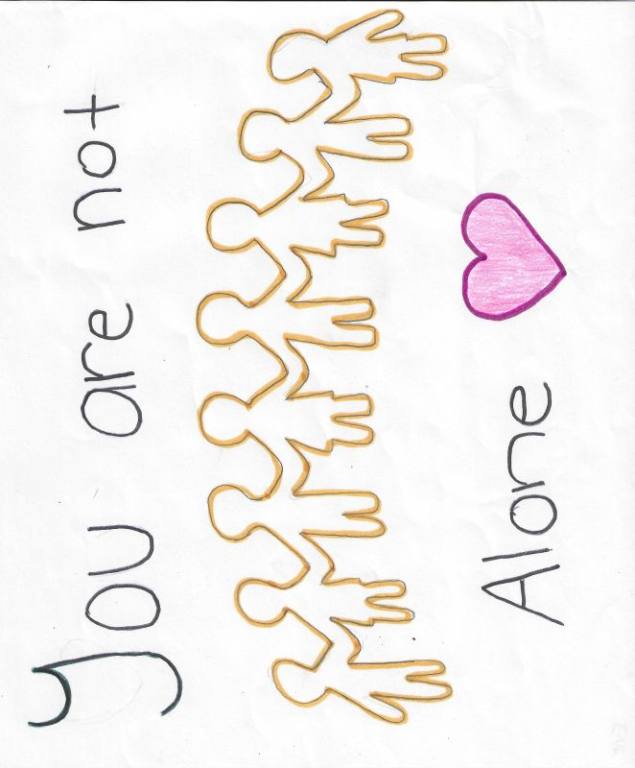 you are not
Alone